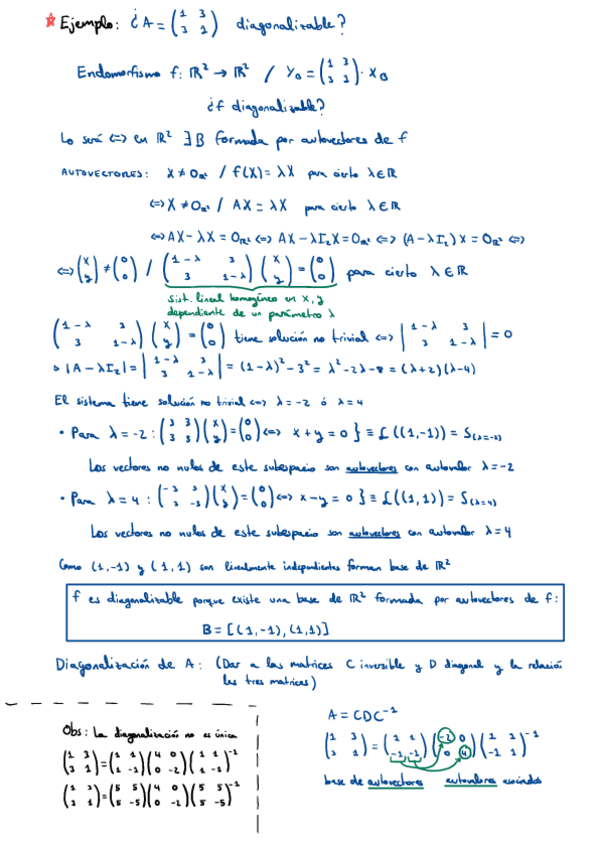 ★ Ejemplo: ¿ A = (1 3 / 3 1) diagonalizable?
Endomorfismo f: ℝ² → ℝ² / Y_B = (1 3 / 3 1) · X_B
¿f diagonalizable?
Lo será ⇔ en ℝ² ∃ B formada por autovectores de f
AUTOVECTORES: X ≠ 0_ℝ² / f(X) = λX para cierto λ ∈ ℝ
⇔ X ≠ 0_ℝ² / AX = λX para cierto λ ∈ ℝ
⇔ AX - λX = 0_ℝ² ⇔ AX - λI₂X = 0_ℝ² ⇔ (A - λI₂)X = 0_ℝ² ⇔
⇔ (x / y) ≠ (0 / 0) / (1-λ 3 / 3 1-λ) (x / y) = (0 / 0) para cierto λ ∈ ℝ
sist. lineal homogéneo en x, y
dependiente de un parámetro λ
(1-λ 3 / 3 1-λ) (x / y) = (0 / 0) tiene solución no trivial ⇔ |1-λ 3 / 3 1-λ| = 0
|A - λI₂| = |1-λ 3 / 3 1-λ| = (1-λ)² - 3² = λ² - 2λ - 8 = (λ+2)(λ-4)
El sistema tiene solución no trivial ⇔ λ = -2 ó λ = 4
• Para λ = -2 : (3 3 / 3 3) (x / y) = (0 / 0) ⇔ x + y = 0 } ≡ L((1,-1)) = S(λ=-2)
Los vectores no nulos de este subespacio son autovectores con autovalor λ = -2
• Para λ = 4 : (-3 3 / 3 -3) (x / y) = (0 / 0) ⇔ x - y = 0 } ≡ L((1,1)) = S(λ=4)
Los vectores no nulos de este subespacio son autovectores con autovalor λ = 4
Como (1,-1) y (1,1) son linealmente independientes forman base de ℝ²
f es diagonalizable porque existe una base de ℝ² formada por autovectores de f:
B = [(1,-1), (1,1)]
Diagonalización de A: (Dar a las matrices C inversible y D diagonal y la relación
las tres matrices)
Obs: La diagonalización no es única
(1 3 / 3 1) = (1 1 / 1 -1) (4 0 / 0 -2) (1 1 / 1 -1)⁻¹
(1 3 / 3 1) = (5 5 / 5 -5) (4 0 / 0 -2) (5 5 / 5 -5)⁻¹
A = CDC⁻¹
(1 3 / 3 1) = (1 1 / -1 -1) (-2 0 / 0 4) (1 1 / -1 1)⁻¹
base de autovectores autovalores asociados